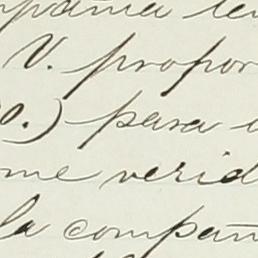 mpañia ten
V. propor
o.) para
me verid
la compañ